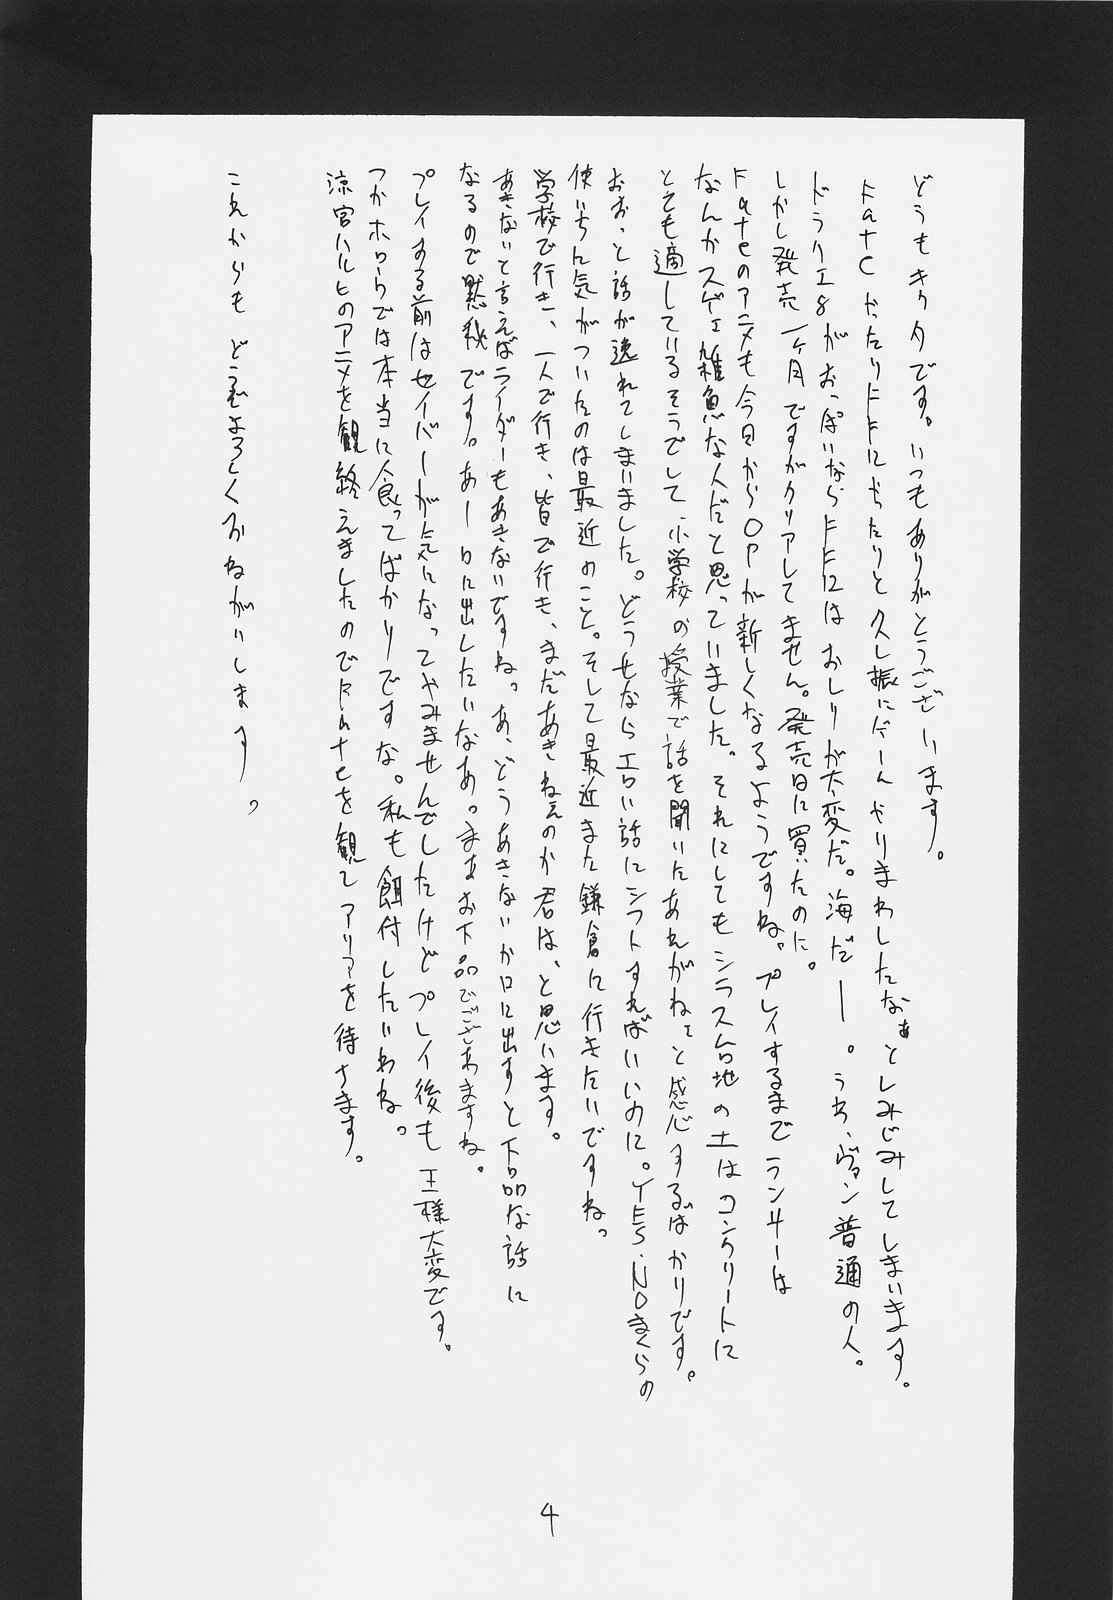 どうもキクタです。いつもありがとうございます。
Fateやったりとか FF12やったりと久し振にゲームやりまわしたなぁとしみじみしてしまいます。
ドラクエ8がおっぱいならFF12はおしりが大変だ。海だー。うわ、ヴァン普通の人。
しかし発売一ヶ月ですがクリアしてません。発売日に買いたのに。
Fateのアニメも今日からOPが新しくなるようですね。プレイするまでランサーは
なんかスゲェ雑魚な人だと思っていました。それにしてもシラス台地の土はコンクリートに
とても適しているそうでして、小学校の授業で話を聞いたあれがねぇと感心するばかりです。
おおっと話が逸れてしまいました。どうせならエロい話にシフトすればいいのに。YES・NOまくらの
使いちに気がついたのは最近のこと。そして最近また鎌倉に行きたいですね。
学校で行き、一人で行き、皆で行き、まだあきねぇのか君は、と思います。
あきないと言えばライダーもあきないですね。あ、どうあきないか口に出すと下品な話に
なるので黙秘です。あー口に出したいなあ。まあお下品でござあますね。
プレイする前はセイバーが気になってやみませんでしたけどプレイ後も王様大変です。
つかホロウでは本当に食ってばかりですな。私も餌付したいわね。
涼宮ハルヒのアニメを観終えましたのでFateを観てアリアを待ちます。
これからもどうぞよろしくおねがいします。
4